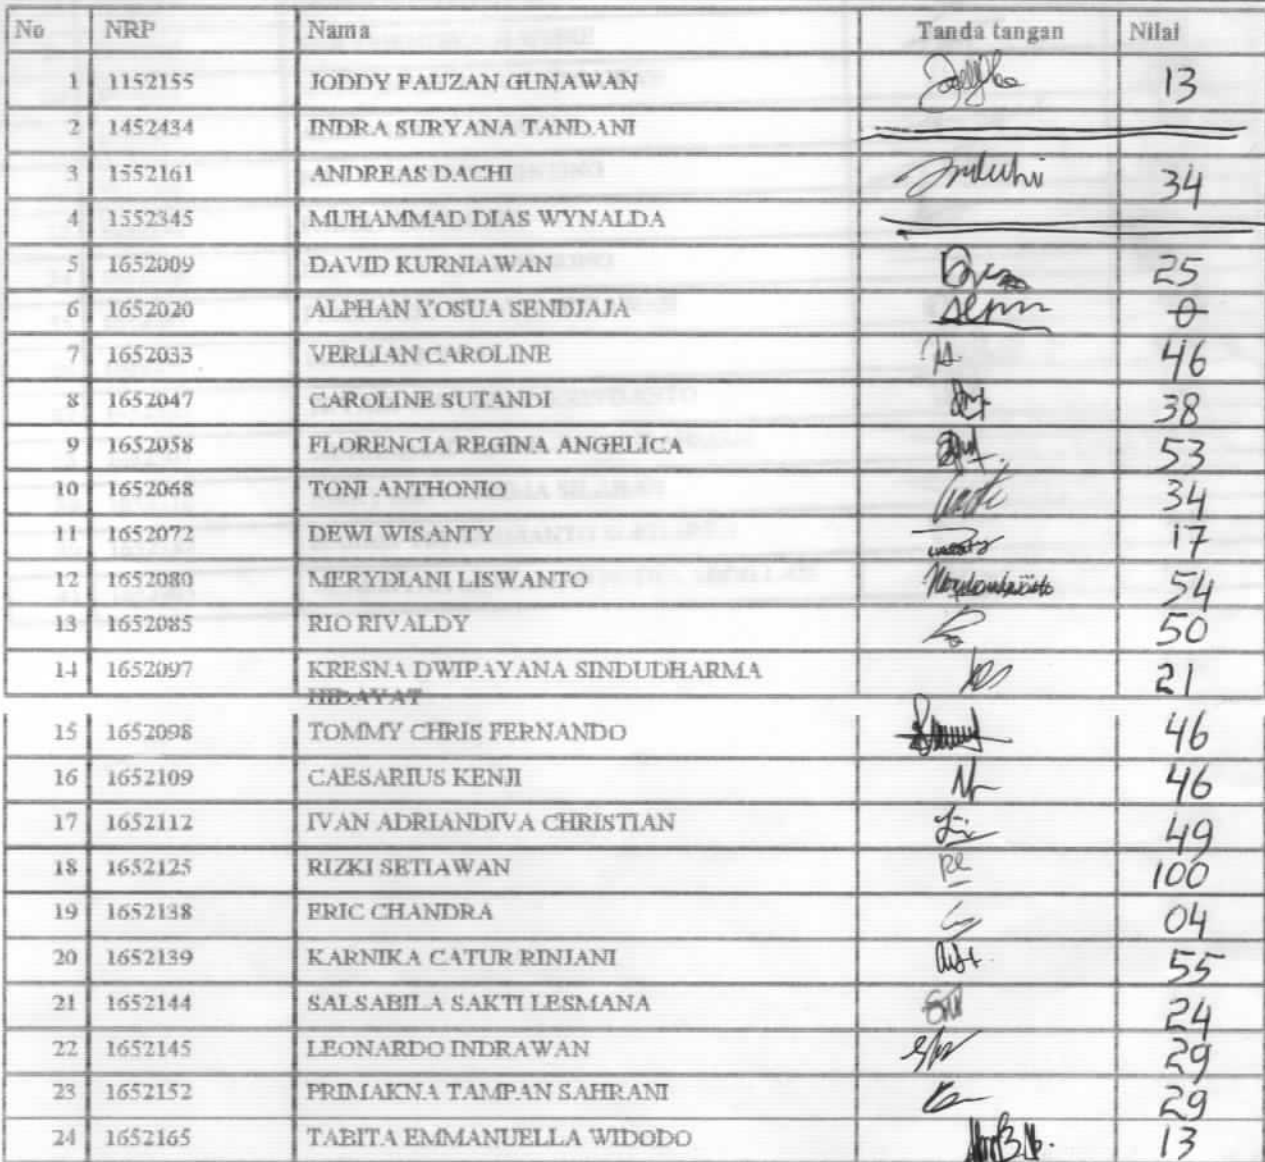 No NRP Nama Tanda tangan Nilai
1 1152155 JODDY FAUZAN GUNAWAN 13
2 1452434 INDRA SURYANA TANDANI
3 1552161 ANDREAS DACHI 34
4 1552345 MUHAMMAD DIAS WYNALDA
5 1652009 DAVID KURNIAWAN 25
6 1652020 ALPHAN YOSUA SENDJAJA 0
7 1652033 VERLIAN CAROLINE 46
8 1652047 CAROLINE SUTANDI 38
9 1652058 FLORENCIA REGINA ANGELICA 53
10 1652068 TONI ANTHONIO 34
11 1652072 DEWI WISANTY 17
12 1652080 MERYDIANI LISWANTO 54
13 1652085 RIO RIVALDY 50
14 1652097 KRESNA DWIPAYANA SINDUDHARMA 21
HIDAYAT
15 1652098 TOMMY CHRIS FERNANDO 46
16 1652109 CAESARIUS KENJI 46
17 1652112 IVAN ADRIANDIVA CHRISTIAN 49
18 1652125 RIZKI SETIAWAN 100
19 1652138 ERIC CHANDRA 04
20 1652139 KARNIKA CATUR RINJANI 55
21 1652144 SALSABILA SAKTI LESMANA 24
22 1652145 LEONARDO INDRAWAN 29
23 1652152 PRIMAKNA TAMPAN SAHRANI 29
24 1652165 TABITA EMMANUELLA WIDODO 13